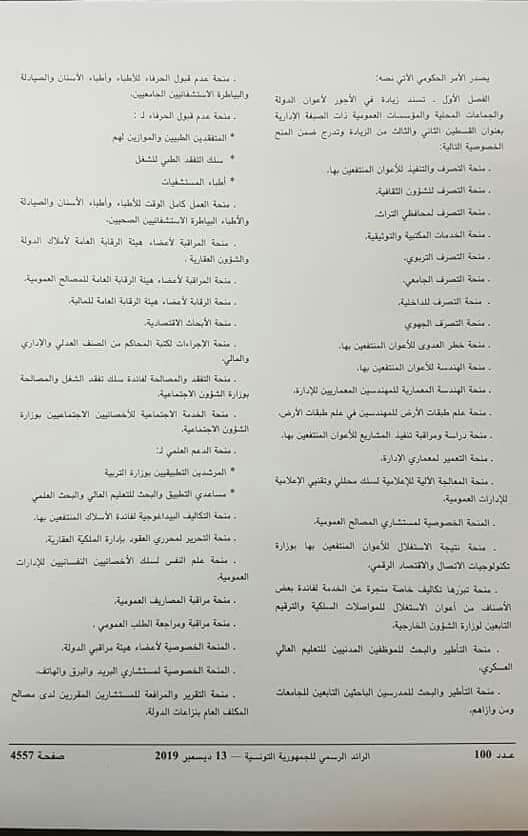 يصدر الأمر الحكومي الآتي نصه:
الفصل الأول . تسند زيادة في الأجور لأعوان الدولة
والجماعات المحلية والمؤسسات العمومية ذات الصبغة الإدارية
بعنوان القسطين الثاني والثالث من الزيادة وتدرج ضمن المنح
الخصوصية التالية:
. منحة التصرف والتنفيذ للأعوان المنتفعين بها،
. منحة التصرف للشؤون الثقافية،
. منحة التصرف لمحافظي التراث،
. منحة الخدمات المكتبية والتوثيقية،
. منحة التصرف التربوي،
. منحة التصرف الجامعي،
. منحة التصرف للداخلية،
. منحة التصرف الجهوي
. منحة خطر العدوى للأعوان المنتفعين بها،
. منحة الهندسة للأعوان المنتفعين بها،
. منحة الهندسة المعمارية للمهندسين المعماريين للإدارة،
. منحة علم طبقات الأرض للمهندسين في علم طبقات الأرض،
. منحة دراسة ومراقبة تنفيذ المشاريع للأعوان المنتفعين بها،
. منحة التعمير لمعماري الإدارة،
. منحة المعالجة الآلية للإعلامية لسلك محللي وتقنيي الإعلامية
للإدارات العمومية،
. المنحة الخصوصية لمستشاري المصالح العمومية،
. منحة نتيجة الاستغلال للأعوان المنتفعين بها بوزارة
تكنولوجيات الاتصال والاقتصاد الرقمي،
. منحة تبررها تكاليف خاصة منجرة عن الخدمة لفائدة بعض
الأصناف من أعوان الاستغلال للمواصلات السلكية والترقيم
التابعين لوزارة الشؤون الخارجية،
. منحة التأطير والبحث للموظفين المدنيين للتعليم العالي
العسكري،
. منحة التأطير والبحث للمدرسين الباحثين التابعين للجامعات
ومن وازاهم،
. منحة عدم قبول الحرفاء للأطباء وأطباء الأسنان والصيادلة
والبياطرة الاستشفائيين الجامعيين،
. منحة عدم قبول الحرفاء لـ :
* المتفقدين الطبيين والموازين لهم
* سلك التفقد الطبي للشغل
* أطباء المستشفيات
. منحة العمل كامل الوقت للأطباء وأطباء الأسنان والصيادلة
والأطباء البياطرة الاستشفائيين الصحيين،
. منحة المراقبة لأعضاء هيئة الرقابة العامة لأملاك الدولة
والشؤون العقارية ،
. منحة المراقبة لأعضاء هيئة الرقابة العامة للمصالح العمومية،
. منحة الرقابة لأعضاء هيئة الرقابة العامة للمالية،
. منحة الأبحاث الاقتصادية،
. منحة الإجراءات لكتبة المحاكم من الصنف العدلي والإداري
والمالي،
. منحة التفقد والمصالحة لفائدة سلك تفقد الشغل والمصالحة
بوزارة الشؤون الاجتماعية،
. منحة الخدمة الاجتماعية للأخصائيين الاجتماعيين بوزارة
الشؤون الاجتماعية،
. منحة الدعم العلمي لـ:
* المرشدين التطبيقيين بوزارة التربية
* مساعدي التطبيق والبحث للتعليم العالي والبحث العلمي
. منحة التكاليف البيداغوجية لفائدة الأسلاك المنتفعين بها،
. منحة التحرير لمحرري العقود بإدارة الملكية العقارية،
. منحة علم النفس لسلك الأخصائيين النفسانيين للإدارات
العمومية،
. منحة مراقبة المصاريف العمومية،
. منحة مراقبة ومراجعة الطلب العمومي ،
. المنحة الخصوصية لأعضاء هيئة مراقبي الدولة،
. المنحة الخصوصية لمستشاري البريد والبرق والهاتف،
. منحة التقرير والمرافعة للمستشارين المقررين لدى مصالح
المكلف العام بنزاعات الدولة،
عدد 100 الرائد الرسمي للجمهورية التونسية — 13 ديسمبر 2019 صفحة 4557